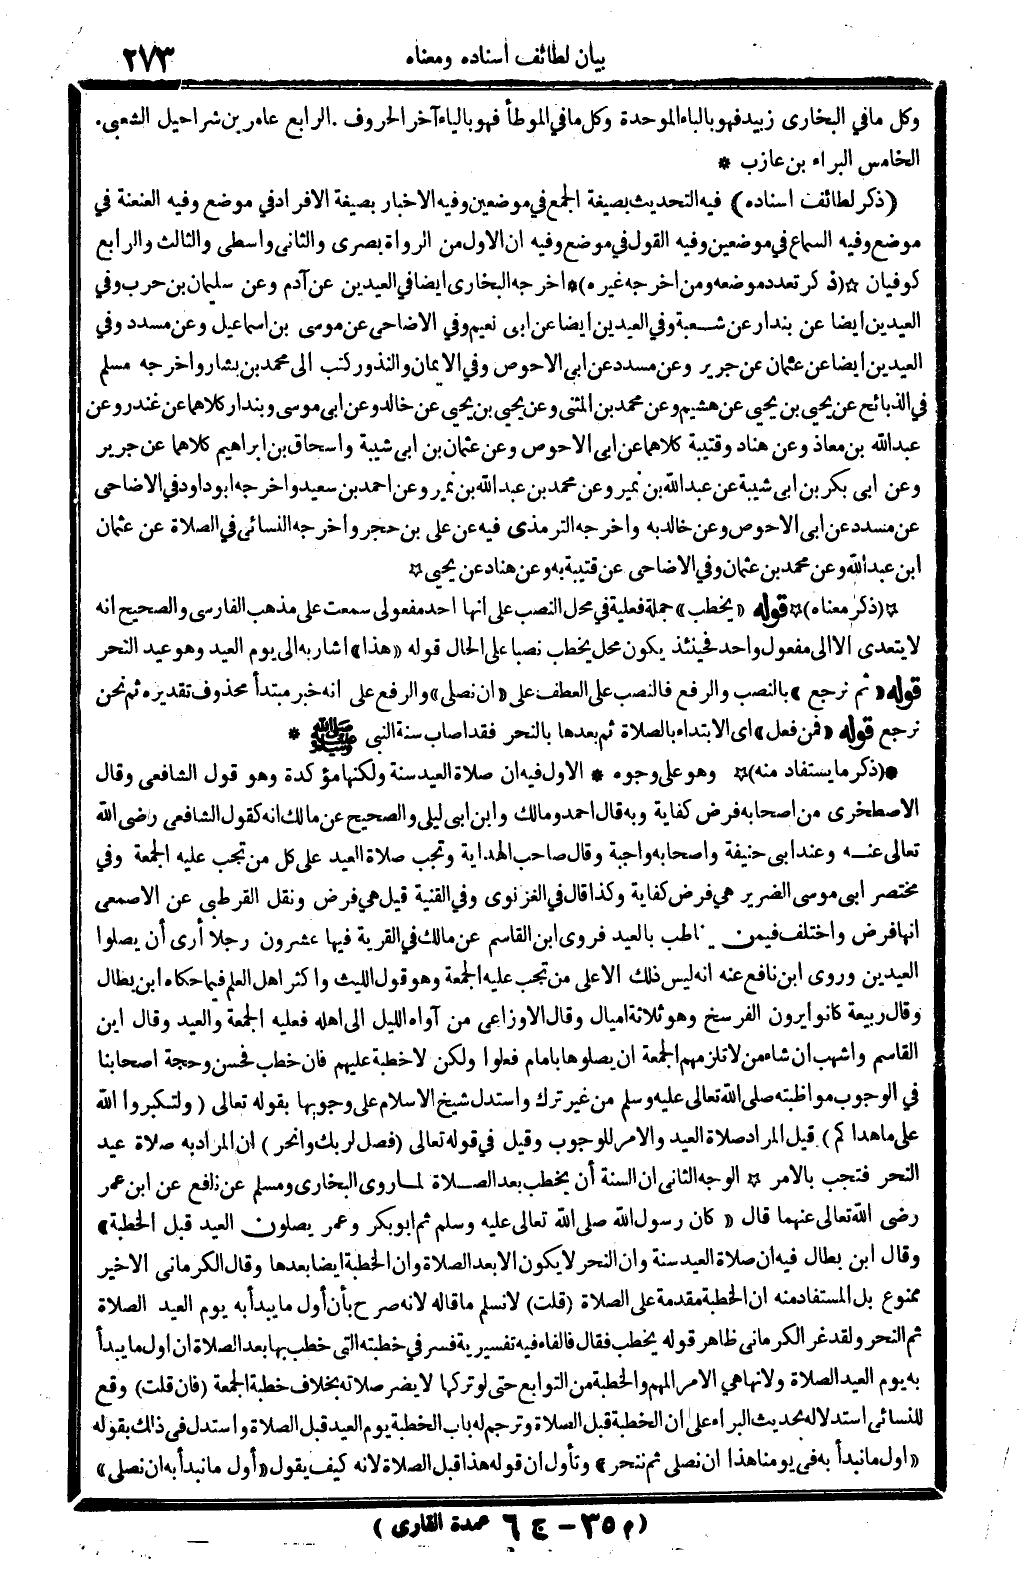 بيان لطائف أسناده ومعناه ٢٧٣
وكل مافي البخارى زبيد فهو بالباء الموحدة وكل مافي الموطأ فهو بالياء آخر الحروف . الرابع عامر بن شراحيل الشعبى .
الخامس البراء بن عازب *
(ذكر لطائف اسناده) فيه التحديث بصيغة الجمع في موضعين وفيه الاخبار بصيغة الافراد في موضع وفيه العنعنة في
موضع وفيه السماع في موضعين وفيه القول في موضع وفيه ان الاول من الرواة بصرى والثانى واسطى والثالث والرابع
كوفيان ☆ (ذكر تعدد موضعه ومن اخرجه غيره) * اخرجه البخارى ايضا في العيدين عن آدم وعن سليمان بن حرب وفي
العيدين ايضا عن بندار عن شعبة وفي العيدين ايضا عن ابى نعيم وفي الاضاحى عن موسى بن اسماعيل وعن مسدد وفي
العيدين أيضا عن عثمان عن جرير وعن مسدد عن ابى الاحوص وفي الايمان والنذور كتب الى محمد بن بشار واخرجه مسلم
في الذبائح عن يحيى بن يحيى عن هشيم وعن محمد بن المثنى وعن يحيى بن يحيى عن خالد وعن ابى موسى وبندار كلاهما عن غندر وعن
عبدالله بن معاذ وعن هناد وقتيبة كلاهما عن ابى الاحوص وعن عثمان بن ابى شيبة واسحاق بن ابراهيم كلاهما عن جرير
وعن ابى بكر بن ابى شيبة عن عبدالله بن نمير وعن محمد بن عبدالله بن نمير وعن احمد بن سعيد واخرجه ابو داود في الاضاحى
عن مسدد عن ابى الاحوص وعن خالد به واخرجه الترمذى فيه عن على بن حجر وأخرجه النسائى في الصلاة عن عثمان
ابن عبدالله وعن محمد بن عثمان وفي الاضاحى عن قتيبة به وعن هناد عن يحيى ☆
☆ (ذكر معناه) ☆ قوله «يخطب» جملة فعلية في محل النصب على انها احد مفعولى سمعت على مذهب الفارسى والصحيح انه
لايتعدى الا الى مفعول واحد فحينئذ يكون محل يخطب نصبا على الحال قوله «هذا» اشار به الى يوم العيد وهو عيد النحر
قوله «ثم نرجع» بالنصب والرفع فالنصب على العطف على «ان نصلى» والرفع على انه خبر مبتدأ محذوف تقديره ثم نحن
نرجع قوله «فمن فعل» اى الابتداء بالصلاة ثم بعدها بالنحر فقد اصاب سنة النبى ﷺ *
* (ذكر ما يستفاد منه) ☆ وهو على وجوه * الاول فيه ان صلاة العيد سنة ولكنها مؤكدة وهو قول الشافعى وقال
الاصطخرى من اصحابه فرض كفاية وبه قال احمد ومالك وابن ابى ليلى والصحيح عن مالك انه كقول الشافعى رضى الله
تعالى عنه وعند ابى حنيفة واصحابه واجبة وقال صاحب الهداية وتجب صلاة العيد على كل من تجب عليه الجمعة وفي
مختصر ابى موسى الضرير هي فرض كفاية وكذا قال في الغزنوى وفي القنية قيل هي فرض ونقل القرطبى عن الاصمعى
انها فرض واختلف فيمن يخاطب بالعيد فروى ابن القاسم عن مالك في القرية فيها عشرون رجلا أرى أن يصلوا
العيدين وروى ابن نافع عنه انه ليس ذلك الا على من تجب عليه الجمعة وهو قول الليث واكثر اهل العلم فيما حكاه ابن بطال
وقال ربيعة كانوا يرون الفرسخ وهو ثلاثة اميال وقال الاوزاعى من آواه الليل الى اهله فعليه الجمعة والعيد وقال ابن
القاسم واشهب ان شاء من لا تلزمهم الجمعة ان يصلوها بامام فعلوا ولكن لاخطبة عليهم فان خطب فحسن وحجة اصحابنا
في الوجوب مواظبته صلى الله تعالى عليه وسلم من غير ترك واستدل شيخ الاسلام على وجوبها بقوله تعالى ( ولتكبروا الله
على ماهداكم ) قيل المراد صلاة العيد والامر للوجوب وقيل في قوله تعالى (فصل لربك وانحر ) ان المراد به صلاة عيد
النحر فتجب بالامر ☆ الوجه الثانى ان السنة أن يخطب بعد الصلاة لما روى البخارى ومسلم عن نافع عن ابن عمر
رضى الله تعالى عنهما قال « كان رسول الله صلى الله تعالى عليه وسلم ثم ابو بكر وعمر يصلون العيد قبل الخطبة »
وقال ابن بطال فيه ان صلاة العيد سنة وان النحر لا يكون الا بعد الصلاة وان الخطبة ايضا بعدها وقال الكرمانى الاخير
ممنوع بل المستفاد منه ان الخطبة مقدمة على الصلاة (قلت) لانسلم ماقاله لانه صرح بأن أول ما يبدأ به يوم العيد الصلاة
ثم النحر ولقد غر الكرمانى ظاهر قوله يخطب فقال فالفاء فيه تفسيرية فسر في خطبته التى خطب بها بعد الصلاة ان اول ما يبدأ
به يوم العيد الصلاة ولانها هي الامر المهم والخطبة من التوابع حتى لو تركها لا يضر صلاته بخلاف خطبة الجمعة (فان قلت) وقع
للنسائى استدلاله بحديث البراء على ان الخطبة قبل الصلاة وترجم له باب الخطبة يوم العيد قبل الصلاة واستدل في ذلك بقوله
«اول ما نبدأ به في يومنا هذا ان نصلى ثم ننحر» وتأول ان قوله هذا قبل الصلاة لانه كيف يقول «أول مانبدأ به ان نصلى»
(م ٣٥ – ج ٦ عمدة القارى )